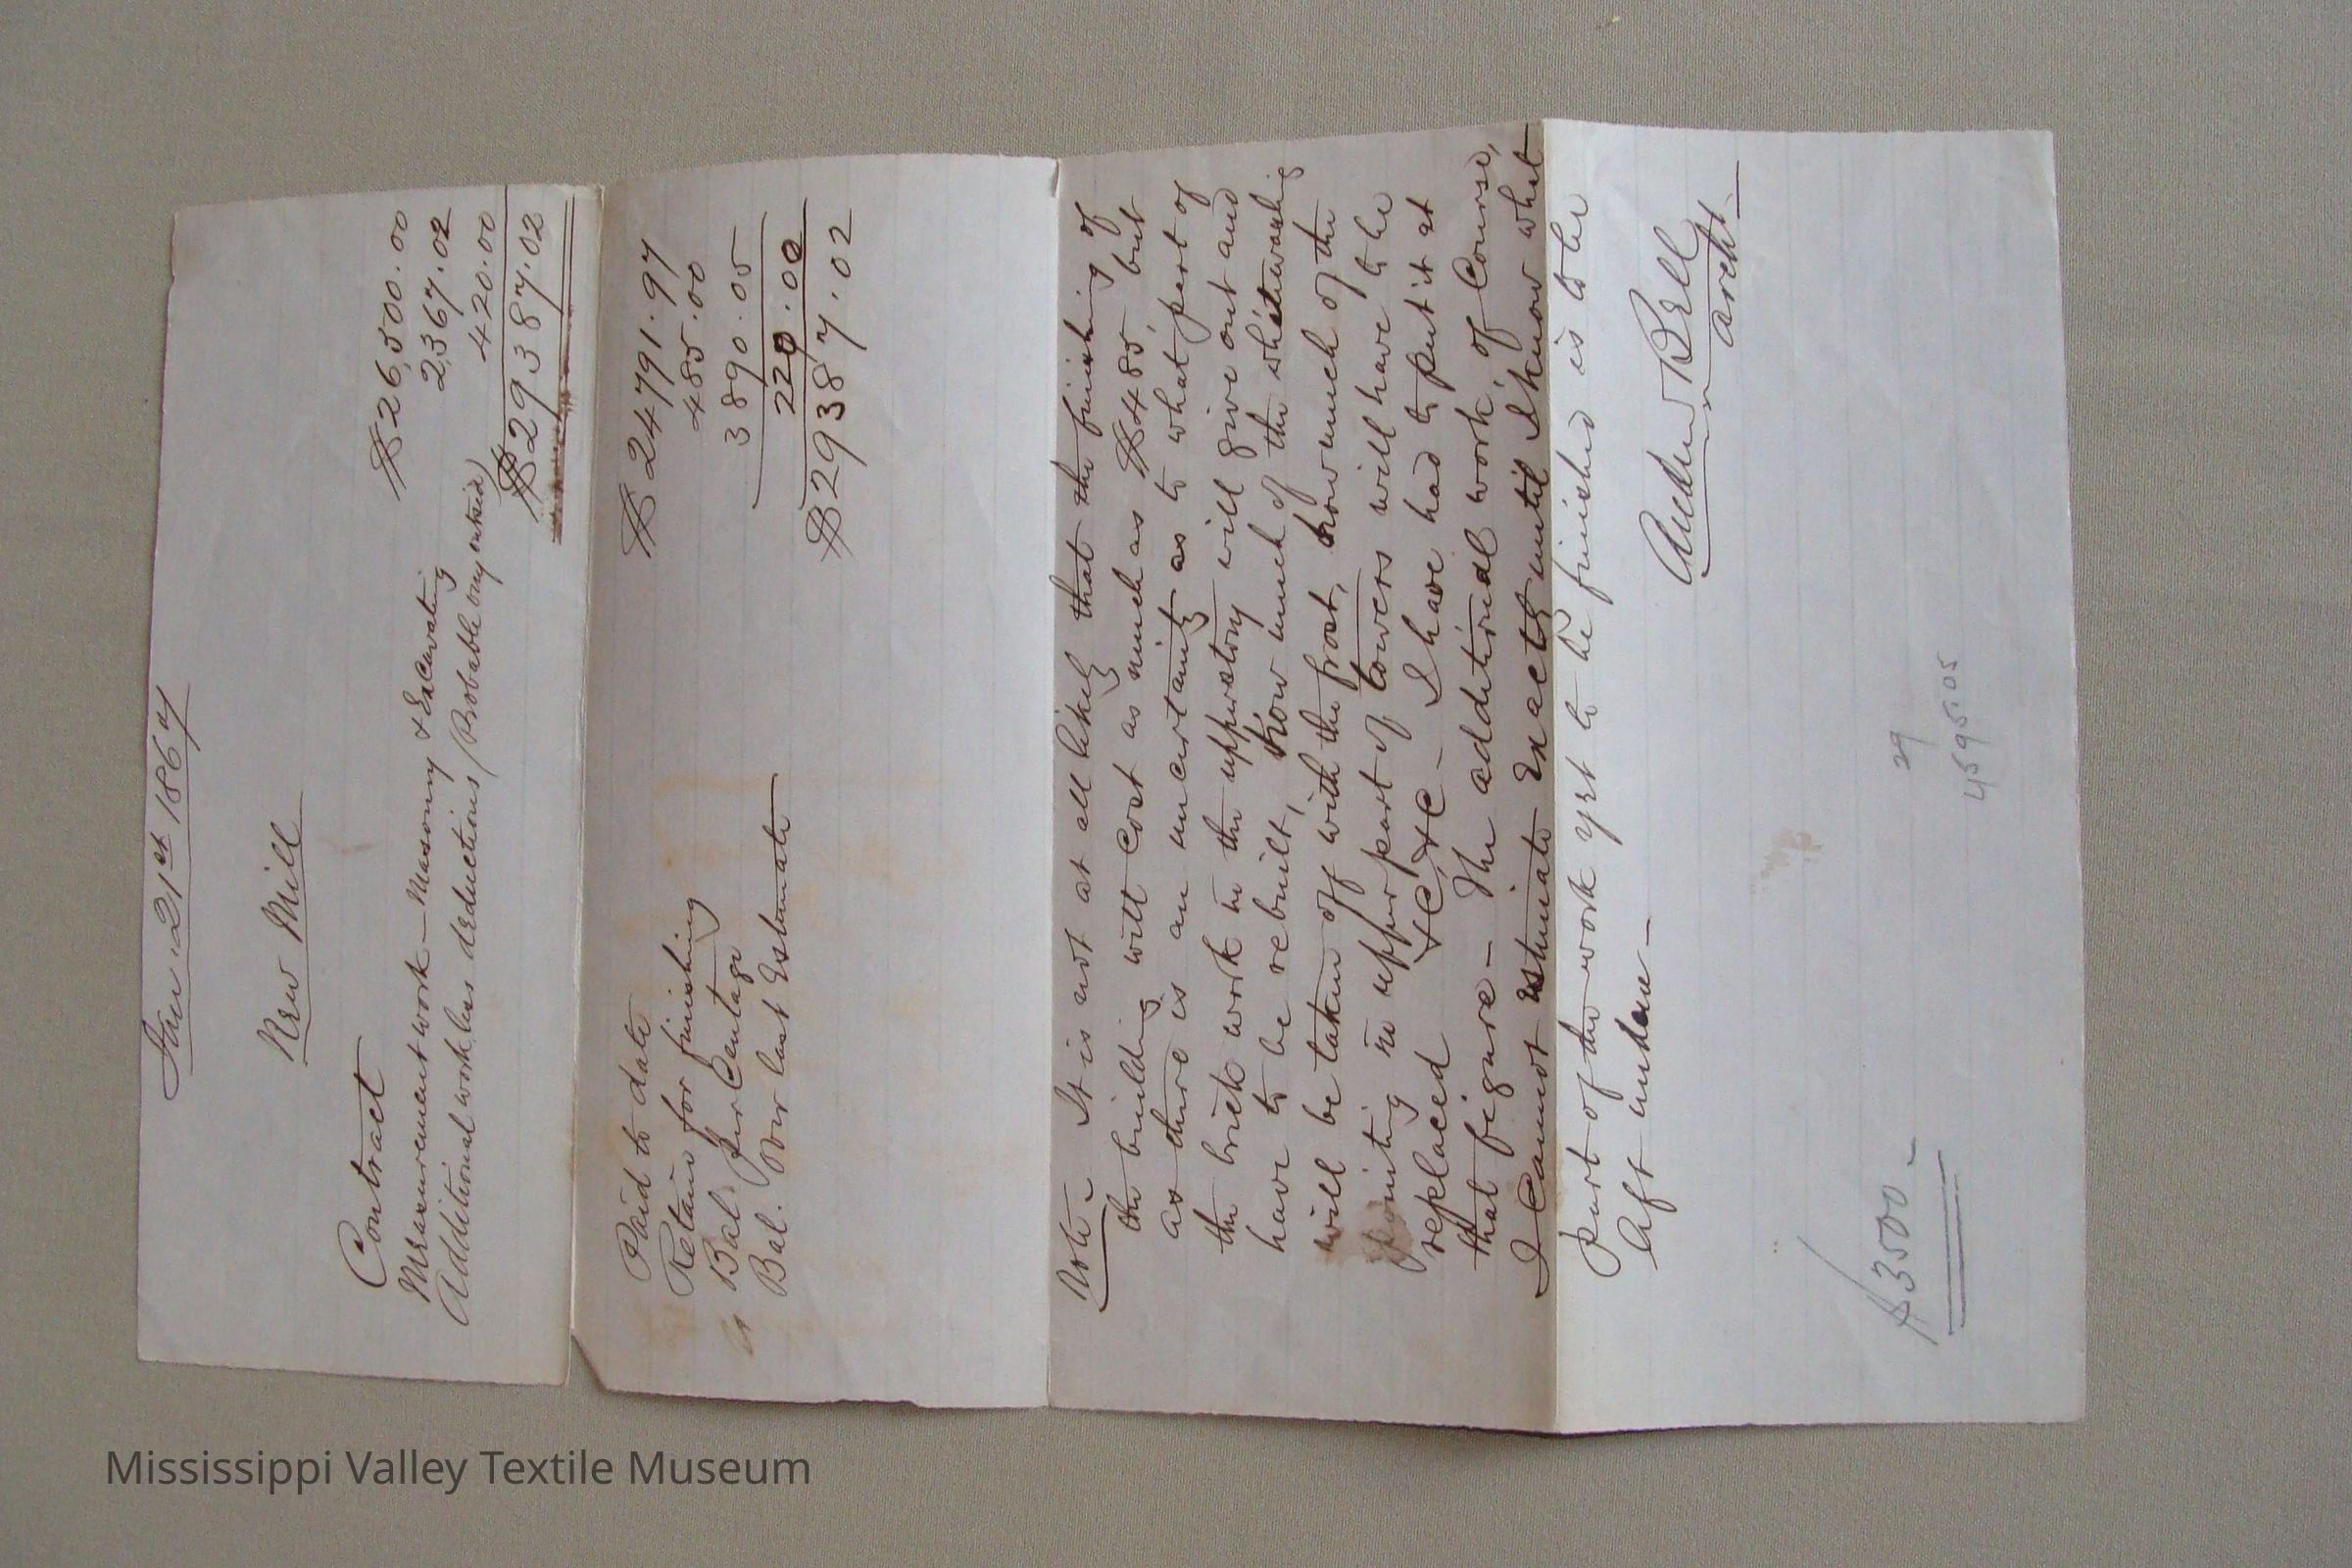 Jan. 21st 1867
New Mill
Contract $26,500.00
Measurement work — Masonry & Excavating 2,367.02
Additional work, less deductions (Probable ony ented) 420.00
$29387.02
Paid to date $24791.97
Retain for finishing 485.00
Bal. per Centage 3890.05
Bal. Over last Estimate 220.00
$29387.02
Note - It is not at all likely that the finishing of
the building will cost as much as $485, but
as there is an uncertainty as to what part of
the brick work in the upper story will give out and
have to be rebuilt, how much of the whitewashig
will be taken off with the frost, how much of the
pointing in upper part of towers will have to be
replaced &C, &C - I have had to put it at
that figure - The additional work, of Course,
I Cannot estimate Exactly until I know what
part of the work yet to be finished is to be
left undone -
Andrew Bell
archt.
$3500 -
29
4595.05
Mississippi Valley Textile Museum